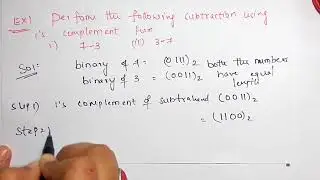 Ex) Perform the following subtraction using
1's complement form
i) 7-3 (ii) 3-7
Sol: binary of 7 = (0111)₂ both the numbers
binary of 3 = (0011)₂ have equal
length
Step 1) 1's complement of subtrahend (0011)₂
= (1100)₂
Step 2)